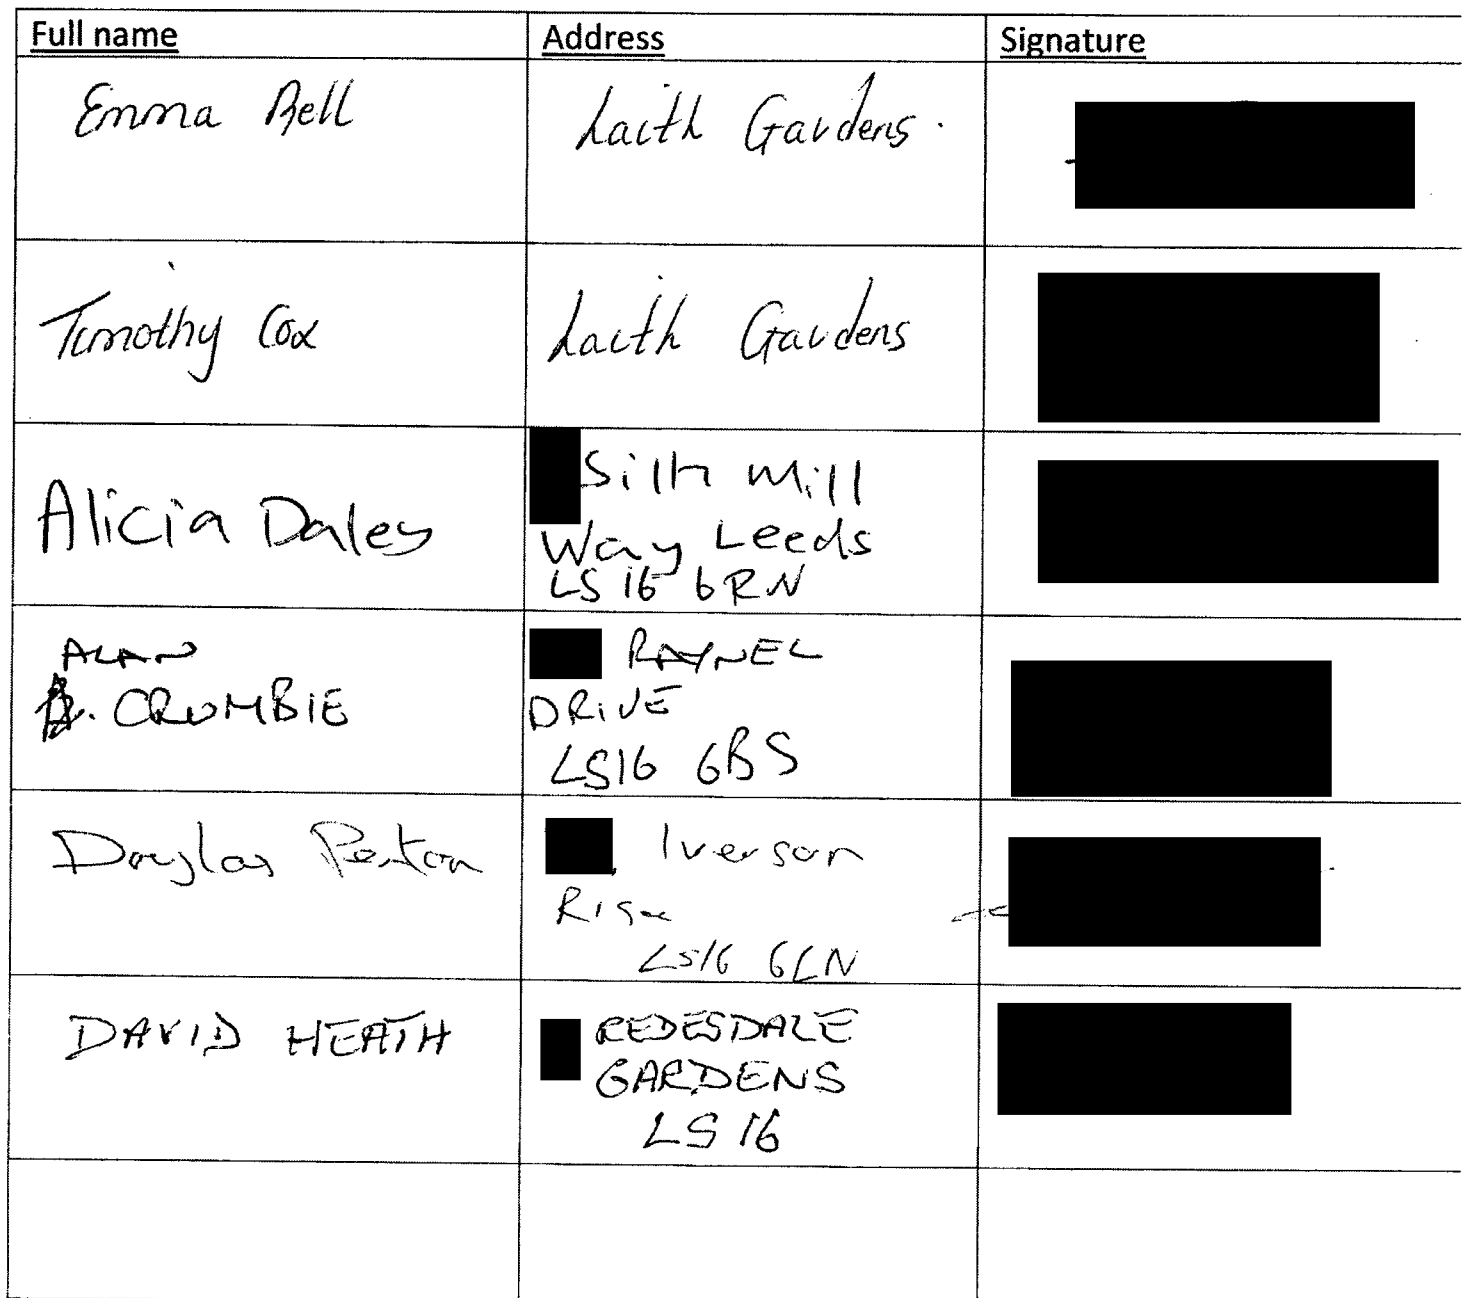 Full name Address Signature
Emma Bell Laith Gardens.
Timothy Cox Laith Gardens
Alicia Daley Silk Mill
Way Leeds
LS16 6RN
ALAN
A. CROMBIE
RAYNEL
DRIVE
LS16 6BS
Douglas Iverson
Rise
LS16 6LN
DAVID HEATH REDESDALE
GARDENS
LS16